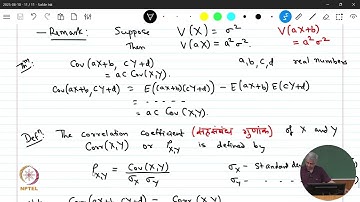 2025-08-30 - 11 / 15 - Sable Ink
— Remark: Suppose V(X) = σ² V(aX+b)
Then V(aX) = a²σ² = a²σ²
Thm: Cov(aX+b, cY+d) a,b,c,d real numbers
= ac Cov(X,Y).
Cov(aX+b, cY+d) = E((aX+b)(cY+d)) − E(aX+b) E(cY+d)
= .....
= ac Cov(X,Y)
Defⁿ: The correlation coefficient (सहसंबंध गुणांक) of X and Y
Corr(X,Y) or ρ_{X,Y} is defined by
ρ_{X,Y} = Cov(X,Y) / σ_X σ_Y σ_X − Standard
σ_Y − ....
Cov(aX+b, cY+d) Corr(X,Y)
NPTEL